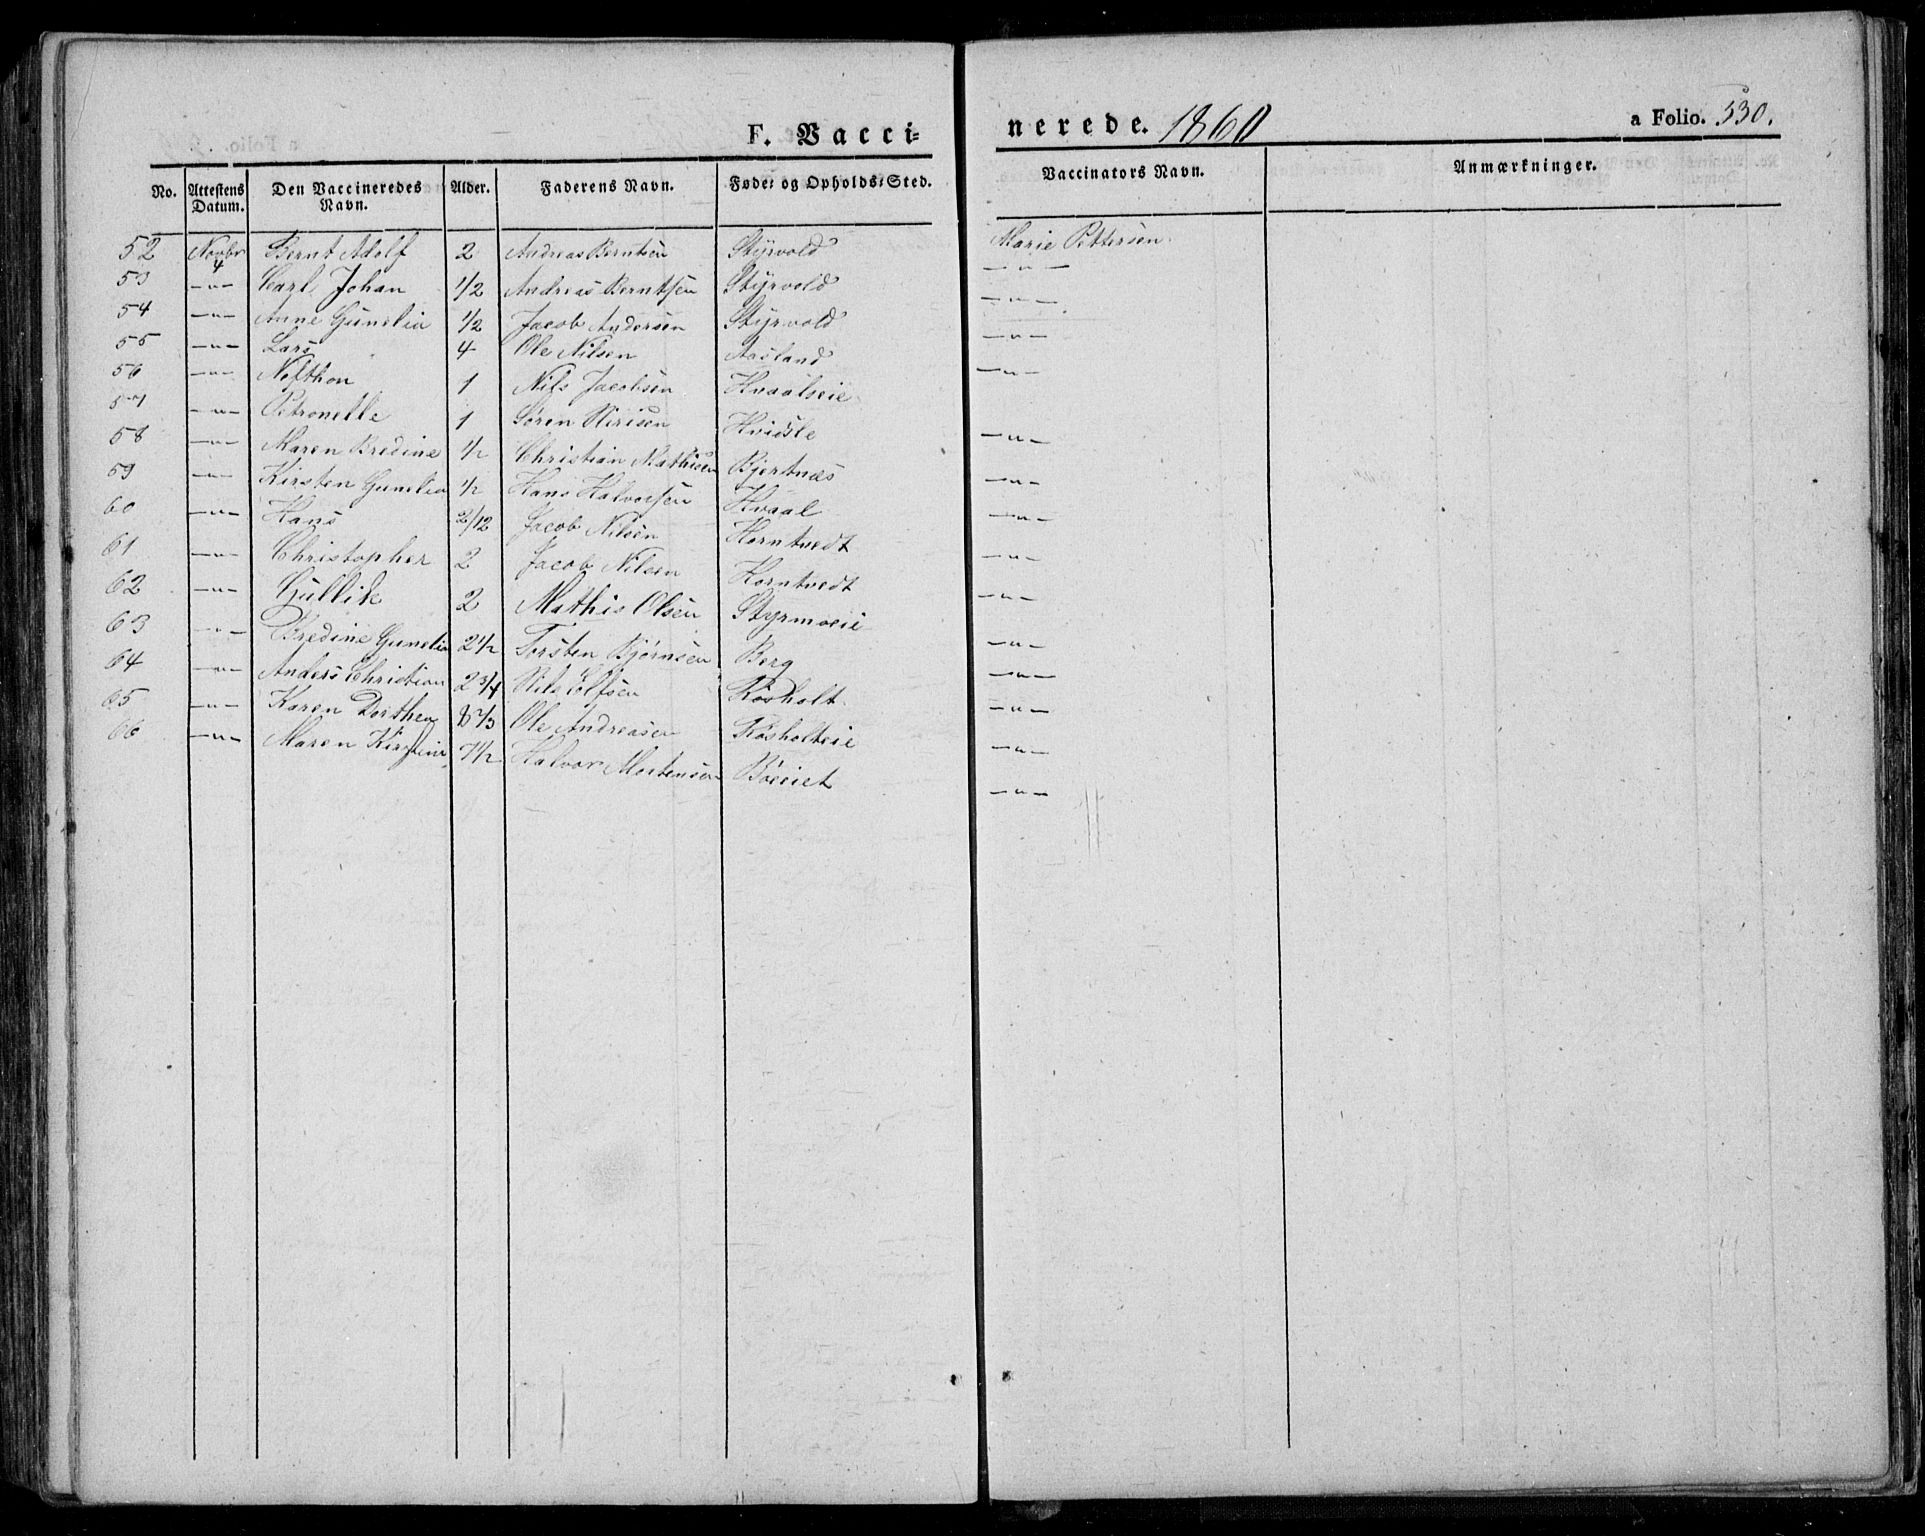 F. Vacci-
nerede. 1860
a Folio. 530.
No. Attestens Datum. Den Vaccineredes Navn. Alder. Faderens Navn. Føde- og Opholds-Sted. Vaccinators Navn. Anmærkninger.
52 Novbr 4 Bernt Adolf 2 Andreas Berntsen Styrvold Marie Pettersen
53 -"- Carl Johan 1/2 Andreas Berntsen Styrvold -"-
54 -"- Anne Gunelia 1/2 Jacob Andersen Styrvold -"-
55 -"- Lars 4 Ole Nilsen Aasland -"-
56 -"- Nefthon 1 Nils Jacobsen Hvaalseie -"-
57 -"- Petronelle 1 Søren Hvidsle -"-
58 -"- Maren Bredine 1/2 Christian Mathisen Bjertnæs -"-
59 -"- Kirsten Gunelia 1/2 Hans Halvorsen Hvaal -"-
60 -"- Hans 2/12 Jacob Nilsen Horntvedt -"-
61 -"- Christopher 2 Jacob Nilsen Horntvedt -"-
62 -"- Gullik 2 Mathis Olsen Styrmoeie -"-
63 -"- Bredine Gunelia 2 1/2 Torsten Bjørnsen Berg -"-
64 -"- Anders Christian 2 3/4 Nils Olfsen Kosholt -"-
65 -"- Karen Dorthea Ole Andreasen Kosholteie -"-
66 -"- Maren Kirstine 7 1/2 Halvor Mortensen Böeeiet -"-